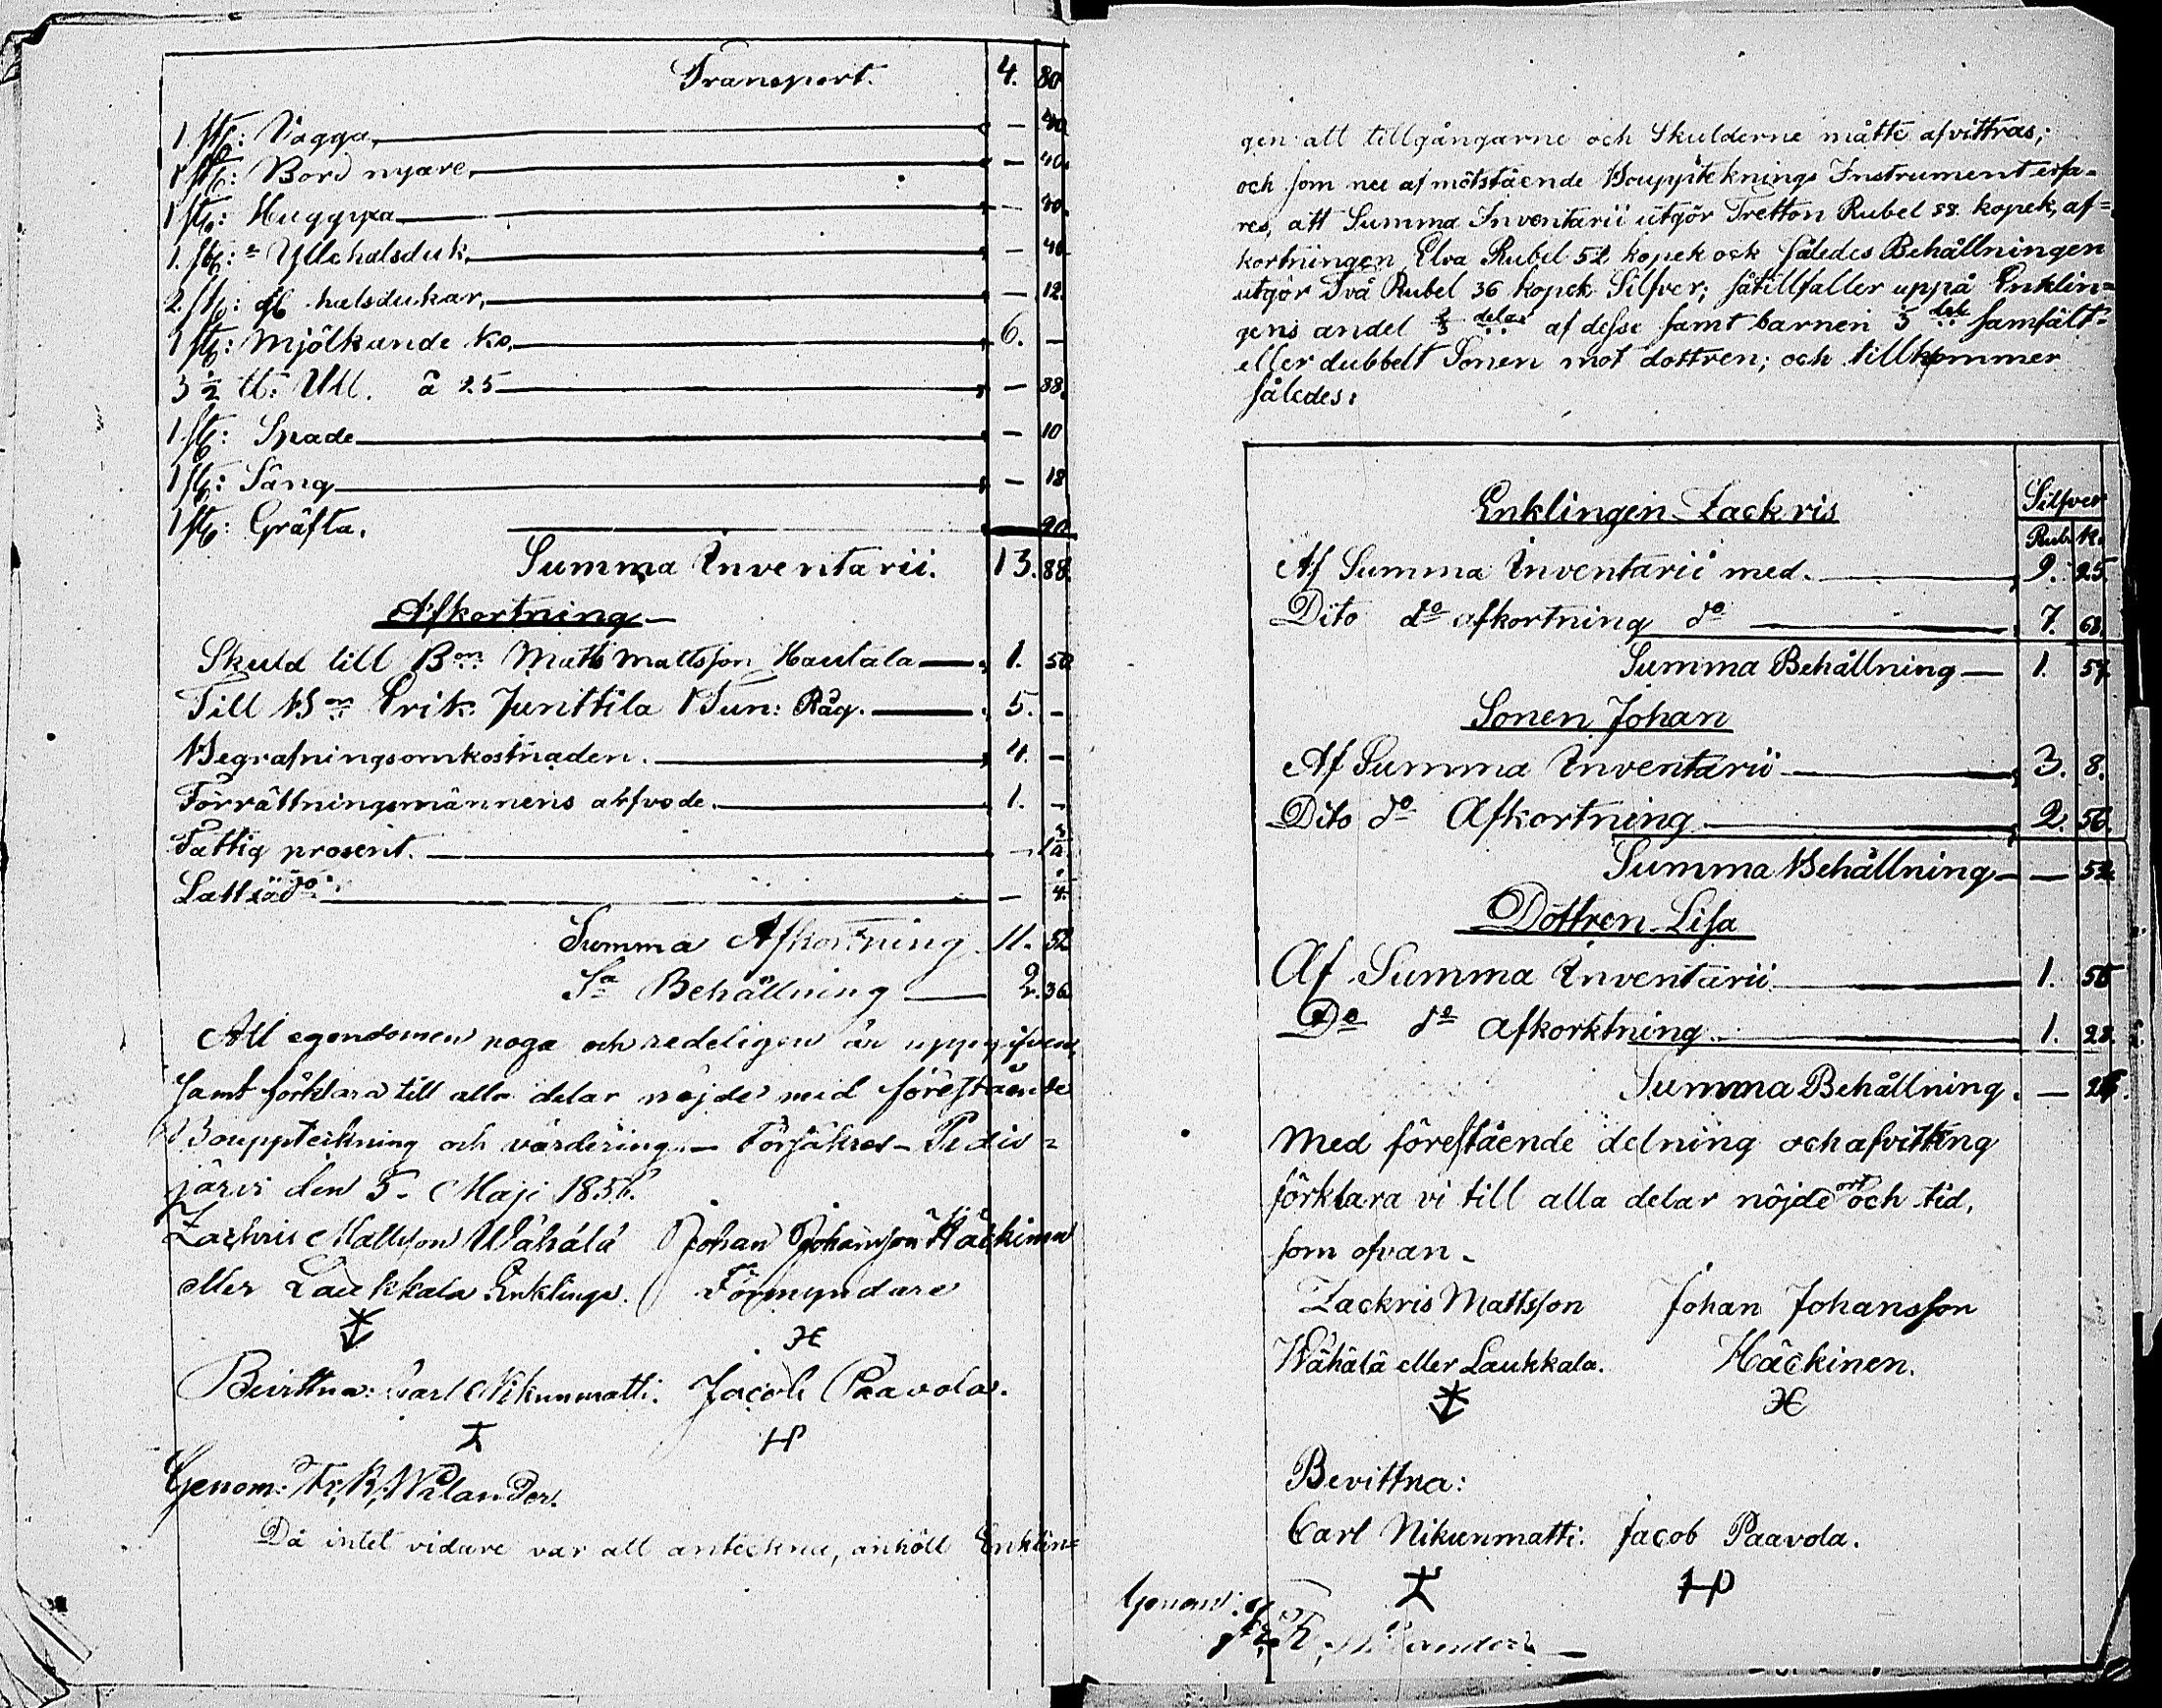 Transport. 4. 80
1 st: Vagga, — 40
1 st: Bord nyare, — 40.
1 st: Huggyxa — 40.
1. st: Yllehalsduk, — 40
2. st: halsdukar, — 12.
1 st: Mjölkande ko, 6. —
3 ½ ℔: Ull. â 25 — 88.
1 st: Spade — 10
1 st: Sâng — 18
1 st: Gräfta. 20.
Summa Inventarii. 13. 88.
Afkortning —
Skuld till Bon Matts Mattsson Hautala — 1. 50
Till Bon Erik Junttila 1 Tun: Råg. — 5. —
Begrafningsomkostnaden. 4. —
Förrättningsmännens arfvode. 1. —
Fattig prosent.
Summa Afkortning 11. 52
Sa Behållning — 2. 36
All egendomen noga och redeligen är uppgifven,
samt förklara till alla delar nöjde med förestående
Bouppteikning och värdering — Försäkras — Pedis=
järvi den 5. Maji 1856.
Zachris Mattsson Wähälä Johan Johansson Häckinen
eller Laukkala Enklinge. Förmyndare
Bevittna: Carl Nikunmatti. Jacob Paavola.
Genom: Fr. R. Wilander.
Då intet vidare var att anteckna, anhöll Enklin=
gen att tillgångarne och Skulderne måtte afvittras;
och som nu af motstående Bouppteknings Instrument erfa=
res, att Summa Inventarii utgör Tretton Rubel 88. kopek, af=
kortningen Elva Rubel 52 kopek och således Behållningen
utgör Två Rubel 36 kopek Silfver; så tillfaller uppå Enklin=
gens andel ⅔ delar af desse samt barnen ⅓ del samfält
eller dubbelt Sonen mot dottren; och tillkommer
således:
Silfver
Enklingen Zackris
Rub. K.
Af Summa Inventarii med. 9. 25.
Dito do afkortning do — 7. 68.
Summa Behållning — 1. 57.
Sonen Johan
Af Summa Inventarii — 3. 8.
Dito do Afkortning — 2. 56.
Summa Behållning — — 52.
Dottren Lisa
Af Summa Inventarii — 1. 55
Do do afkorktning. 1. 28.
Summa Behållning. —
Med förestående delning och afvitting
förklara vi till alla delar nöjde ort och tid,
som ofvan —
Zackris Mattsson Johan Johansson
Wähälä eller Laukkala. Häckinen.
Bevittna:
Carl Nikunmatti: Jacob Paavola.
Genom:
Fr. R. Wilander —